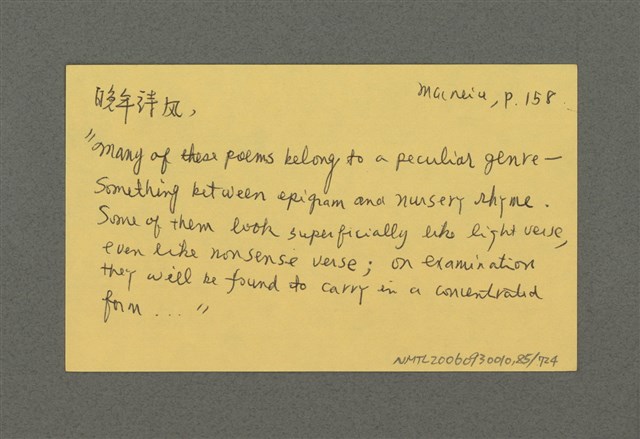 晚年詩风,
MacNeice, p. 158.
"many of these poems belong to a peculiar genre—
Something between epigram and nursery rhyme.
Some of them look superficially like light verse,
even like nonsense verse; on examination
they will be found to carry in a concentrated
form ... "
NMTL20060930010,85/724